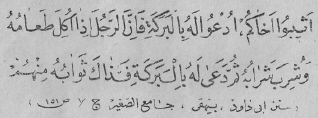 اَثِيبُوا اَخَاكُمْ، اُدْعُوا لَهُ بِالْبَرَكَةِ فَاِنَّ الرَّجُلَ اِذَا اُكِلَ طَعَامُهُ
وَشُرِبَ شَرَابُهُ ثُمَّ دُعِيَ لَهُ بِالْبَرَكَةِ فَذَاكَ ثَوَابُهُ مِنْهُمْ
(سنن ابی داؤد، بیہقی، جامع الصغیر ج ۷ ص ۱۵۱)